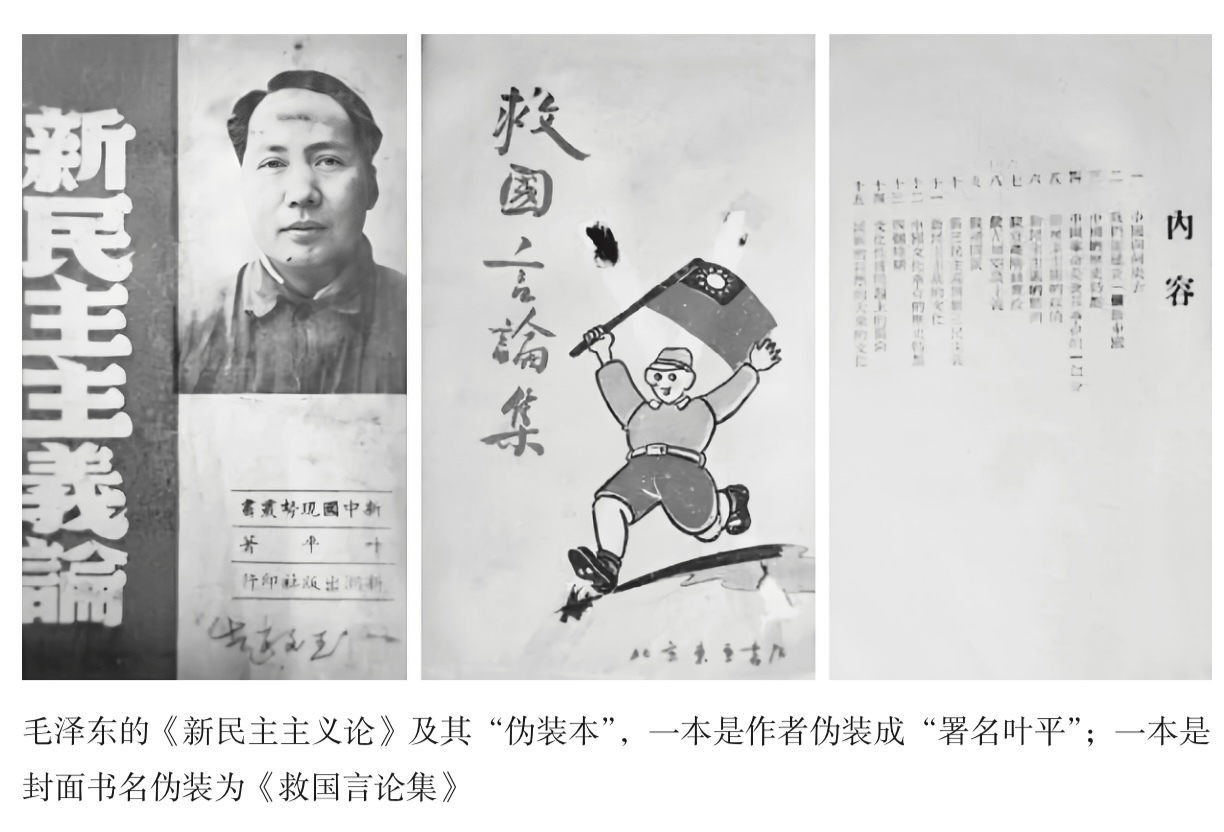 新民主主義論
新中國現勢叢書
叶平著
新潮出版社印行
救國言論集
北京東亞書店
内容
一 中國向何處去
二 我們要建立一個新中國
三 中國的歷史特點
四 中國革命是世界革命的一部分
五 新民主主義的政治
六 新民主主義的經濟
七 駁資產階級專政
十 舊三民主義與新三民主義
十一 新民主主義的文化
十二 中國文化革命的歷史特點
十三 四個時期
十四 文化性質問題上的偏向
十五 民族的科學的大衆的文化
毛泽东的《新民主主义论》及其“伪装本”，一本是作者伪装成“署名叶平”；一本是
封面书名伪装为《救国言论集》